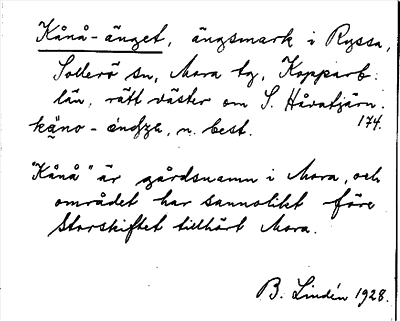 Kånå-änget, ängsmark i Ryssa,
Sollerö sn, Mora tg, Kopparb.
län, rätt väster om S. Håvatjärn.
174.
kä̰no-ɛ́nd̨ʒɐ, n. best.
"Kånå" är gårdsnamn i Mora, och
området har sannolikt före
Storskiftet tillhört Mora.
B. Lindén 1928.